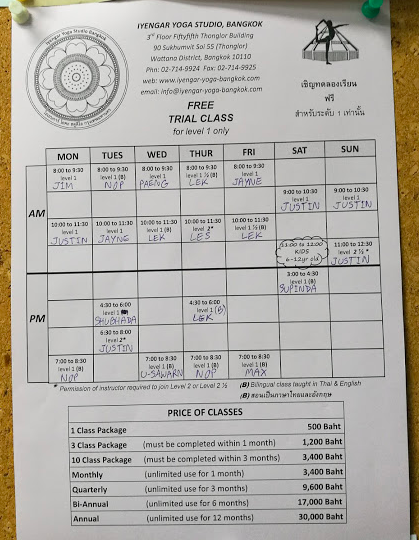 Iyengar Yoga Studio Bangkok
IYENGAR YOGA STUDIO, BANGKOK
3rd Floor Fiftyfifth Thonglor Building
90 Sukhumvit Soi 55 (Thonglor)
Wattana District, Bangkok 10110
Phn: 02-714-9924 Fax: 02-714-9925
web: www.iyengar-yoga-bangkok.com
email: info@iyengar-yoga-bangkok.com
FREE
TRIAL CLASS
for level 1 only
เชิญทดลองเรียน
ฟรี
สำหรับระดับ 1 เท่านั้น
MON TUES WED THUR FRI SAT SUN
AM
8:00 to 9:30 8:00 to 9:30 8:00 to 9:30 8:00 to 9:30 8:00 to 9:30
level 1 level 1 (B) level 1 (B) level 1 ½ (B) level 1
JIM NOP PAENG LEK JAYNE
9:00 to 10:30 9:00 to 10:30
level 1 level 1
JUSTIN JUSTIN
10:00 to 11:30 10:00 to 11:30 10:00 to 11:30 10:00 to 11:30 10:00 to 11:30
level 1 level 1 level 1 (B) level 2* level 1 ½ (B)
JUSTIN JAYNE LEK LES LEK
11:00 to 12:00 11:00 to 12:30
KIDS level 2 ½ *
6-12yr old JUSTIN
PM
3:00 to 4:30
level 1 (B)
SUPINDA
4:30 to 6:00 4:30 to 6:00
level 1 level 1 (B)
SHUBHADA LEK
6:30 to 8:00
level 2*
JUSTIN
7:00 to 8:30 7:00 to 8:30 7:00 to 8:30 7:00 to 8:30
level 1 (B) level 1 (B) level 1 (B) level 1 (B)
NOP U-SAWARN NOP MAX
* Permission of instructor required to join Level 2 or Level 2 ½
(B) Bilingual class taught in Thai & English
(B) สอนเป็นภาษาไทยและอังกฤษ
PRICE OF CLASSES
1 Class Package 500 Baht
3 Class Package (must be completed within 1 month) 1,200 Baht
10 Class Package (must be completed within 3 months) 3,400 Baht
Monthly (unlimited use for 1 month) 3,400 Baht
Quarterly (unlimited use for 3 months) 9,600 Baht
Bi-Annual (unlimited use for 6 months) 17,000 Baht
Annual (unlimited use for 12 months) 30,000 Baht